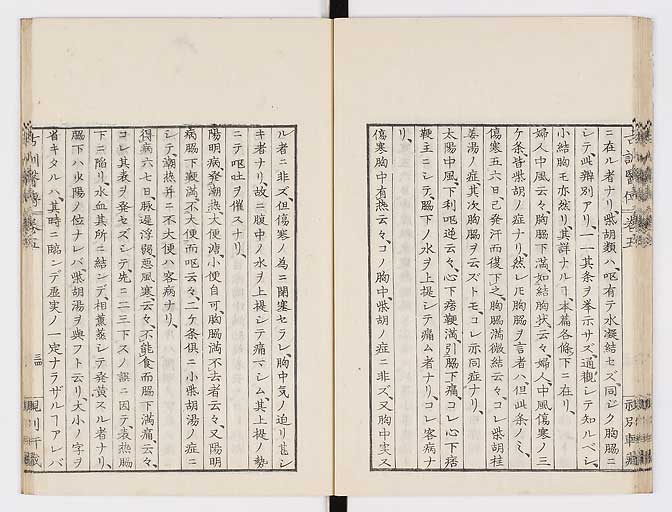 ニ在ル者ナリ柴胡類ハ嘔有テ水凝結セズ同ジク胸脇ニ
シテ此辨別アリ一一其条ヲ挙示サズ通觀シテ知ルベシ
小結胸モ亦然リ其詳ナルヿ本篇各條下ニ在リ
婦人中風云々胸脇下満如結胸状云々婦人中風傷寒ノ三
ケ条皆柴胡ノ症ナリ然レ𪜈胸脇ヲ言者ハ但此条ノミ
傷寒五六日已発汗而復下之胸脇満微結云々コレ柴胡桂
姜湯ノ症其次胸脇ヲ云ズトモコレ亦同症ナリ
太陽中風下利嘔逆云々心下痞鞕満引脇下痛コレ心下痞
鞕主ニシテ脇下ノ水ヲ上提シテ痛ム者ナリコレ客病ナ
リ
傷寒胸中有熱云々コノ胸中柴胡ノ症ニ非ズ又胸中実ス
ル者ニ非ズ但傷寒ノ為ニ閉塞セラレ胸中気ノ迫リ甚シ
キ者ナリ故ニ腹中ノ水ヲ上提シテ痛マシム其上提ノ勢
ニテ嘔吐ヲ催スナリ
陽明病発潮熱大便溏小便自可胸脇満不去者云々又陽明
病脇下鞕満不大便而嘔云々二ケ条俱ニ小柴胡湯ノ症ニ
シテ潮熱并ニ不大便ハ客病ナリ
得病六七日脉遅浮弱悪風寒云々不能食而脇下満痛云々
コレ其表ヲ発セズシテ先ニ二三下スノ誤ニ因テ表熱脇
下ニ陥リ水血其所ニ結シテ相薫蒸シテ発黄スル者ナリ
脇下ハ少陽ノ位ナレバ柴胡湯ヲ與フト云リ大小ノ字ヲ
省キタルハ其時ニ臨ンデ虚実ノ一定ナラザルヿアレバ